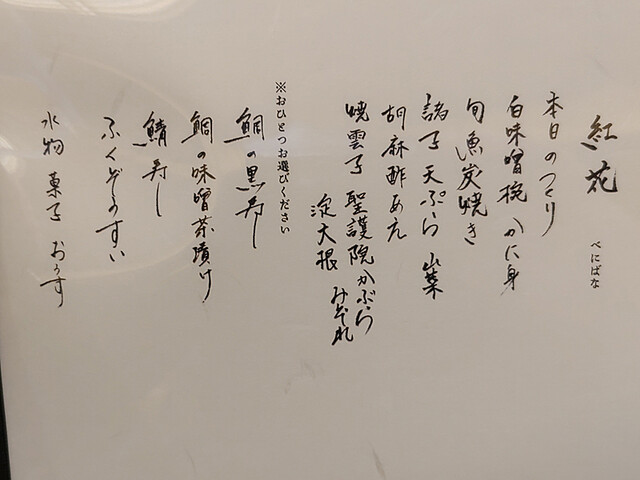 紅花
べにばな
本日のつくり
白味噌椀 かに身
旬魚炭焼き
諸子天ぷら 山菜
胡麻酢あえ
焼雲子 聖護院かぶら
みぞれ
淀大根
※おひとつお選びください
鯛の黒寿し
鯛の味噌茶漬け
鯖寿し
ふくぞうすい
水物 菓子 おうす